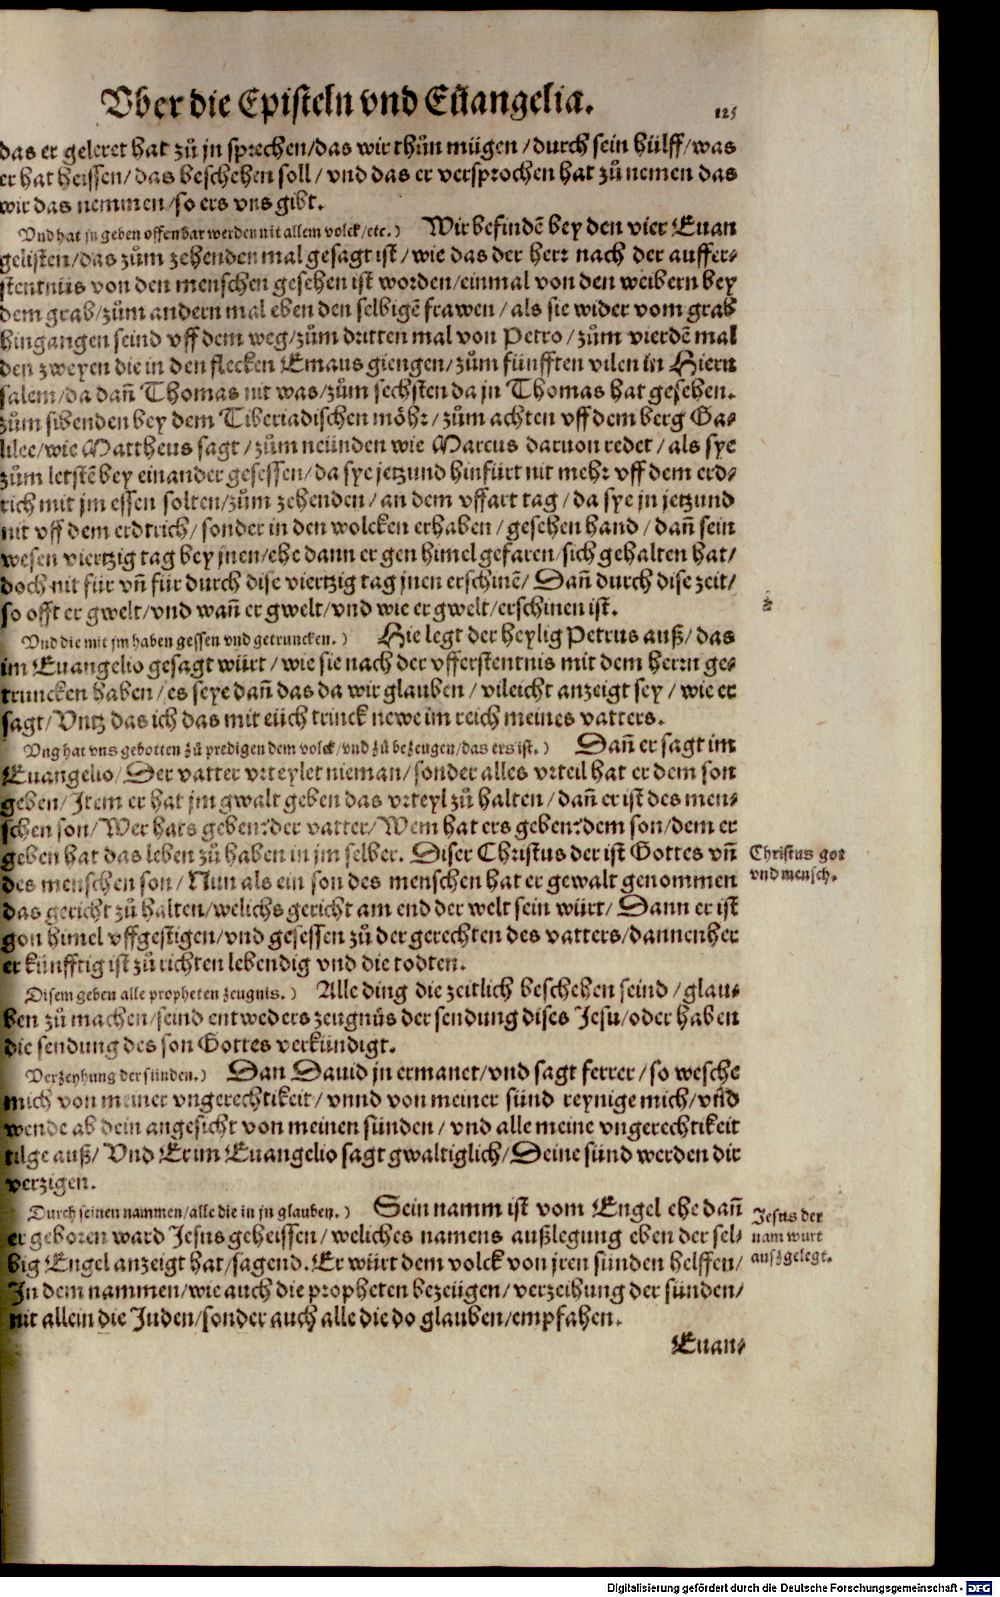 Vber die Episteln vnd Eűangelia.
125
das er geleret hat zů jn sprechen/das wir thůn mügen/durch sein hülff/was
er hat heissen/das beschehen soll/vnd das er versprochen hat zů nemen das
wir das nemmen/so ers vns gibt.
Vnd hat jn geben offenbar werden nit allem volck/etc.) Wir befindē bey den vier Euan
gelisten/das zům zehenden mal gesagt ist/wie das der herr nach der auffer⸗
stentnüs von den menschen gesehen ist worden/einmal von den weibern bey
dem grab/zům andern mal eben den selbigē frawen/als sie wider vom grab
hingangen seind vff dem weg/zům dritten mal von Petro/zům vierdē mal
den zweyen die in den flecken Emaus giengen/zům fünfften vilen in Hieru
salem/da dañ Thomas nit was/zům sechsten da jn Thomas hat gesehen.
zům sibenden bey dem Tiberiadischen möhr/zům achten vff dem berg Ga⸗
lilee/wie Mattheus sagt/zům neünden wie Marcus daruon redet/als sye
zům letstē bey einander gesessen/da sye jetzund hinfürt nit mehr vff dem erd⸗
rich mit jm essen solten/zům zehenden/an dem vffart tag/da sye jn jetzund
nit vff dem erdtrich/sonder in den wolcken erhaben/gesehen hand/dañ sein
wesen viertzig tag bey jnen/ehe dann er gen himel gefaren/sich gehalten hat/
doch nit für vñ für durch dise viertzig tag jnen erschinē/Dañ durch dise zeit/
so offt er gwelt/vnd wañ er gwelt/vnd wie er gwelt/erschinen ist.
Vnd die mit jm haben gessen vnd getruncken.) Hie legt der heylig Petrus auß/das
im Euangelio gesagt würt/wie sie nach der vfferstentnis mit dem herrn ge⸗
truncken haben/es seye dañ das da wir glauben/vileicht anzeigt sey/wie er
sagt/Vntz das ich das mit eüch trinck newe im reich meines vatters.
Vng hat vns gebotten zů predigen dem volck/vnd zů bezeugen/das ers ist.) Dañ er sagt im
Euangelio/Der vatter vrteylet nieman/sonder alles vrteil hat er dem son
geben/Item er hat jm gwalt geben das vrteyl zů halten/dañ er ist des men⸗
schen son/Wer hats geben:der vatter/Wem hat ers geben:dem son/dem er
geben hat das leben zů haben in jm selber. Diser Christus der ist Gottes vñ
des menschen son/Nun als ein son des menschen hat er gewalt genommen
das gericht zů halten/welichs gericht am end der welt sein würt/Dann er ist
gon himel vffgestigen/vnd gesessen zů der gerechten des vatters/dannenher
er künfftig ist zů richten lebendig vnd die todten.
Christus got
vnd mensch.
Disem geben alle propheten zeugnis.) Alle ding die zeitlich beschehen seind/glau⸗
ben zů machen/seind entweders zeugnüs der sendung dises Jesu/oder haben
die sendung des son Gottes verkündigt.
Verzeyhung der sünden.) Dan Dauid jn ermanet/vnd sagt ferrer/so wesche
mich von meiner vngerechtikeit/vnnd von meiner sünd reynige mich/vñd
wende ab dein angesicht von meinen sünden/vnd alle meine vngerechtikeit
tilge auß/Vnd Er im Euangelio sagt gwaltiglich/Deine sünd werden dir
verzigen.
Durch seinen nammen/alle die in jn glauben.) Sein namm ist vom Engel ehe dañ
er geboren ward Jesus geheissen/weliches namens außlegung eben der sel⸗
big Engel anzeigt hat/sagend. Er würt dem volck von jren sünden helffen/
In dem nammen/wie auch die propheten bezeügen/verzeihung der sünden/
nit allein die Juden/sonder auch alle die do glauben/empfahen.
Jesus der
nam würt
auszgelegt.
Euan⸗
Digitalisierung gefördert durch die Deutsche Forschungsgemeinschaft - DFG